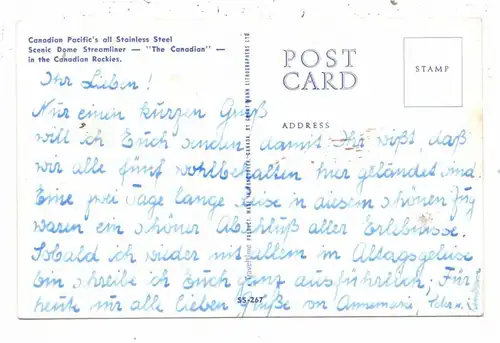 Canadian Pacific's all Stainless Steel
Scenic Dome Streamliner — "The Canadian" —
in the Canadian Rockies.
POST
CARD
ADDRESS
STAMP
Ihr Lieben!
Nur einen kurzen Gruß
will ich Euch senden damit Ihr wißt, daß
wir alle fünf wohlbehalten hier gelandet sind
Eine zwei Tage lange Reise in diesem schönen Zug
waren ein schöner Abschluß aller Erlebnisse.
Sobald ich wieder mit allem im Altagsgeleise
bin schreibe ich Euch ganz ausführlich; Für
heute nur alle lieben Grüße von Annemarie,
SS-267